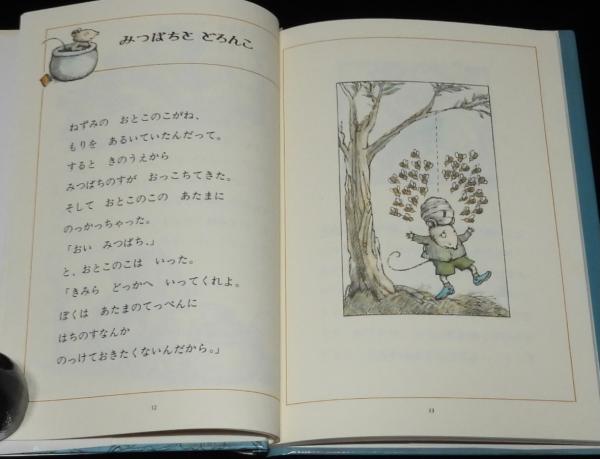 みつばちと どろんこ
ねずみの おとこのこがね、
もりを あるいていたんだって。
すると きのうえから
みつばちのすが おっこちてきた。
そして おとこのこの あたまに
のっかっちゃった。
「おい みつばち、」
と、おとこのこは いった。
「きみら どっかへ いってくれよ。
ぼくは あたまのてっぺんに
はちのすなんか
のっけておきたくないんだから。」
12
13